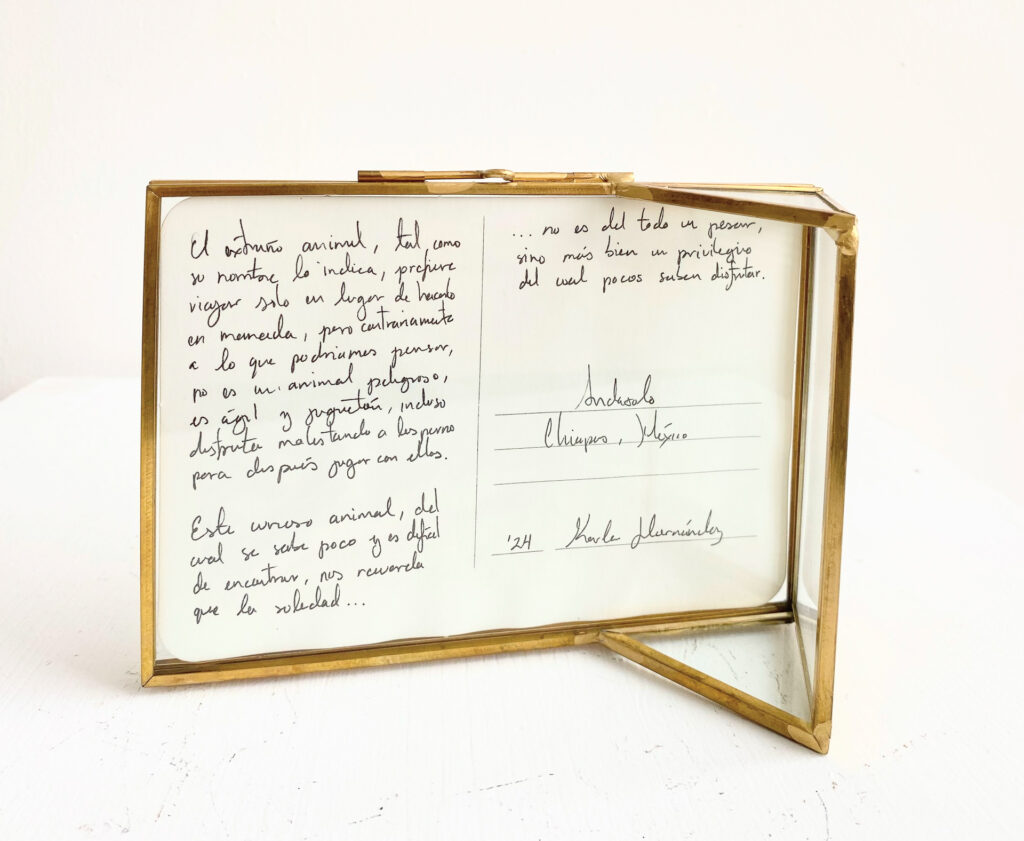 El extraño animal, tal como
su nombre lo indica, prefiere
viajar solo en lugar de hacerlo
en manada, pero contrariamente
a lo que podríamos pensar,
no es un animal peligroso,
es ágil y juguetón, incluso
disfruta molestando a los perros
para después jugar con ellos.
Este curioso animal, del
cual se sabe poco y es difícil
de encontrar, nos recuerda
que la soledad...
... no es del todo un pesar,
sino más bien un privilegio
del cual pocos saben disfrutar.
Andasolo
Chiapas, México
'24 Karla Hernández